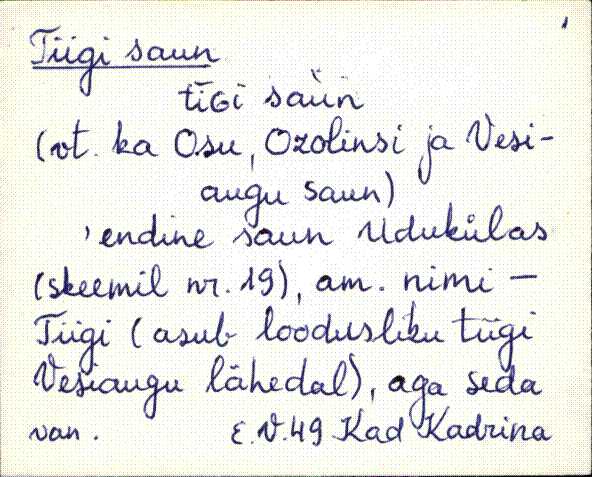 Tiigi saun
tīGi saùn
(vt. ka Osu, Ozolinsi ja Vesi-
augu saun)
'endine saun Udukülas
(skeemil nr. 19), am. nimi –
Tiigi (asub loodusliku tiigi
Vesiaugu lähedal), aga seda
van. E.V.49 Kad Kadrina